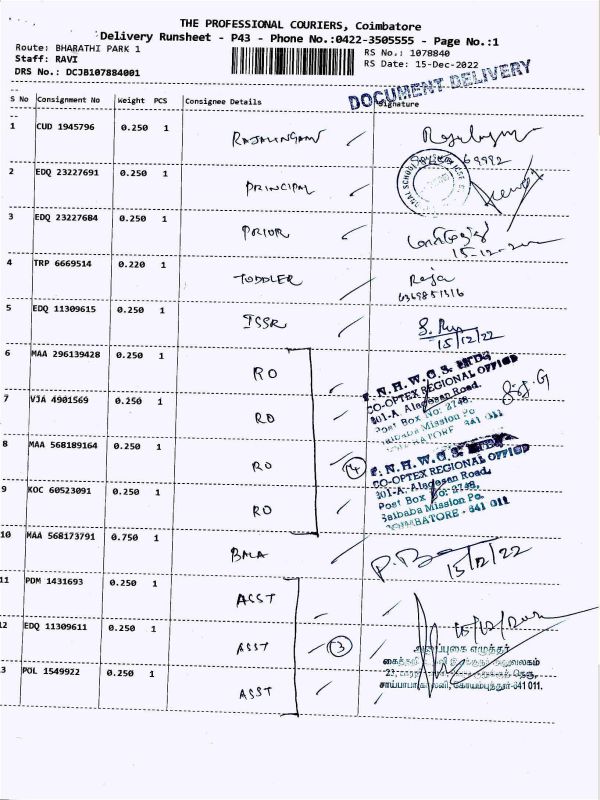 THE PROFESSIONAL COURIERS, Coimbatore
Delivery Runsheet - P43 - Phone No.:0422-3505555 - Page No.:1
Route: BHARATHI PARK 1
Staff: RAVI
DRS No.: DCJB107884001
RS No.: 1078840
RS Date: 15-Dec-2022
DOCUMENT DELIVERY
S No Consignment No Weight PCS Consignee Details Signature
1 CUD 1945796 0.250 1 RAJALINGAM
69992
2 EDQ 23227691 0.250 1 PRINCIPAL
3 EDQ 23227684 0.250 1 PRIOR
15-12-2022
4 TRP 6669514 0.220 1 TODDLER Raja
6369851316
5 EDQ 11309615 0.250 1 ISSR
15/12/22
6 MAA 296139428 0.250 1 RO
7 VJA 4901569 0.250 1 RO
8 MAA 568189164 0.250 1 RO
9 KOC 60523091 0.250 1 RO
4
T.N.H.W.C.S. LTD
CO-OPTEX REGIONAL OFFICE
201-A, Alagesan Road,
Post Box No: 2748,
Saibaba Mission Po
COIMBATORE - 641 011
T.N.H.W.C.S. LTD
CO-OPTEX REGIONAL OFFICE
201-A, Alagesan Road,
Post Box No: 2748,
Saibaba Mission Po.
COIMBATORE - 641 011
10 MAA 568173791 0.750 1 BALA
15/12/22
11 PDM 1431693 0.250 1 ASST
12 EDQ 11309611 0.250 1 ASST
3
15/12/2022
3 POL 1549922 0.250 1 ASST
அலுவலகம்
கோயம்புத்தூர்-641 011.